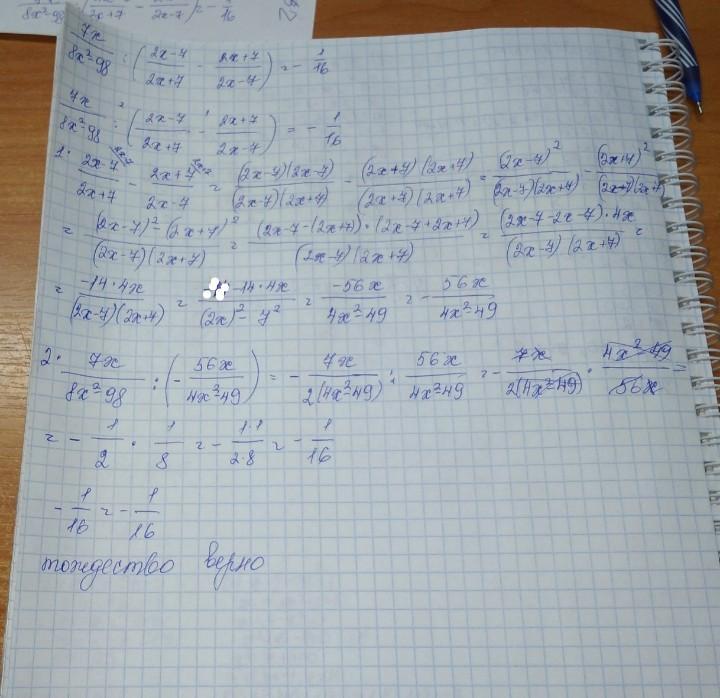 7x/(8x²-98) : ((2x-7)/(2x+7) - (2x+7)/(2x-7)) = -1/16
7x/(8x²-98) : ((2x-7)/(2x+7) - (2x+7)/(2x-7)) = -1/16
1. (2x-7)/(2x+7) - (2x+7)/(2x-7) = (2x-7)(2x-7)/(2x-7)(2x+7) - (2x+7)(2x+7)/(2x+7)(2x+7) = (2x-7)²/(2x-7)(2x+7) - (2x+7)²/(2x+7)(2x+7)
= ((2x-7)²-(2x+7)²)/(2x-7)(2x+7) = (2x-7-(2x+7))·(2x-7+2x+7)/(2x-7)(2x+7) = (2x-7-2x-7)·4x/(2x-7)(2x+7) =
= -14·4x/(2x-7)(2x+7) = -14·4x/((2x)²-7²) = -56x/(4x²-49) = -56x/(4x²-49)
2. 7x/(8x²-98) : (-56x/(4x²-49)) = -7x/2(4x²-49) : 56x/(4x²-49) = -7x/2(4x²-49) · (4x²-49)/56x =
= -1/2 · 1/8 = -1·1/2·8 = -1/16
-1/16 = -1/16
тождество верно